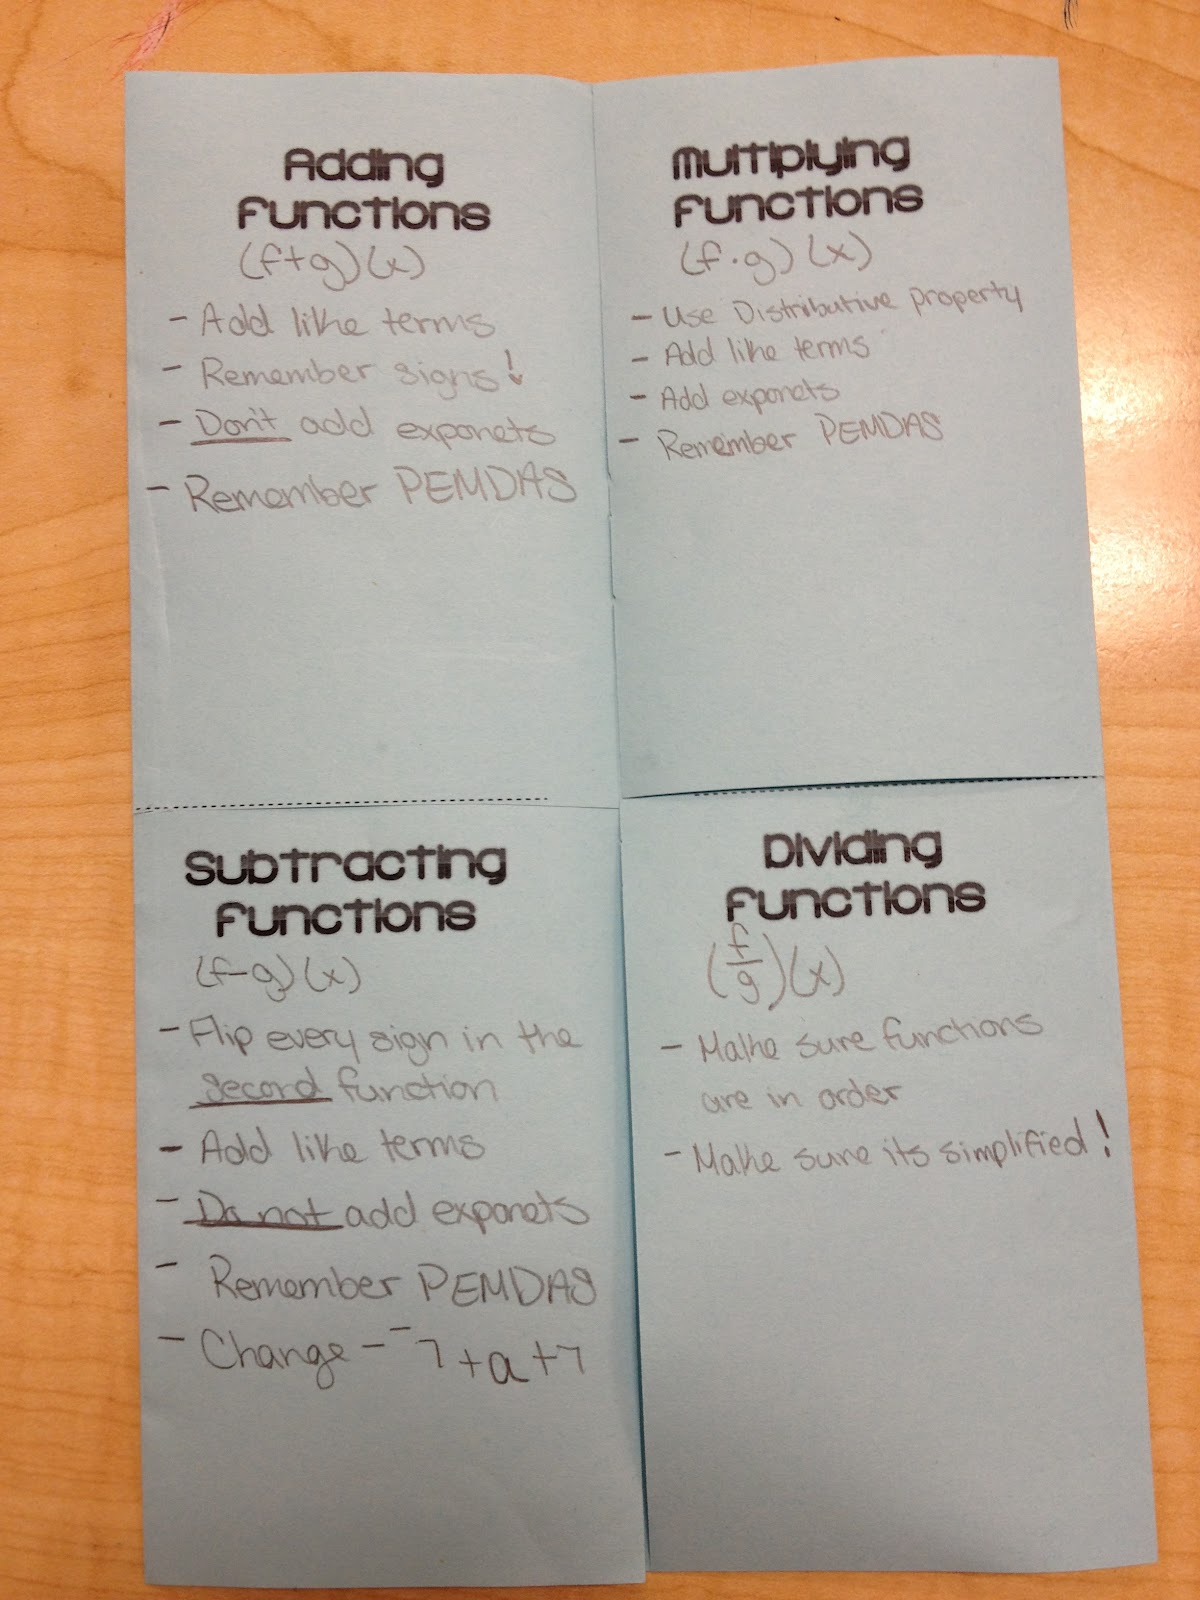 Adding
Functions
(f+g)(x)
- Add like terms
- Remember signs!
- Don't add exponets
- Remember PEMDAS
Multiplying
Functions
(f·g)(x)
- Use Distributive property
- Add like terms
- Add exponets
- Remember PEMDAS
Subtracting
Functions
(f-g)(x)
- Flip every sign in the
second function
- Add like terms
- Do not add exponets
- Remember PEMDAS
- Change - ⁻7 +a +7
Dividing
Functions
(f/g)(x)
- Make sure functions
are in order
- Make sure its simplified!